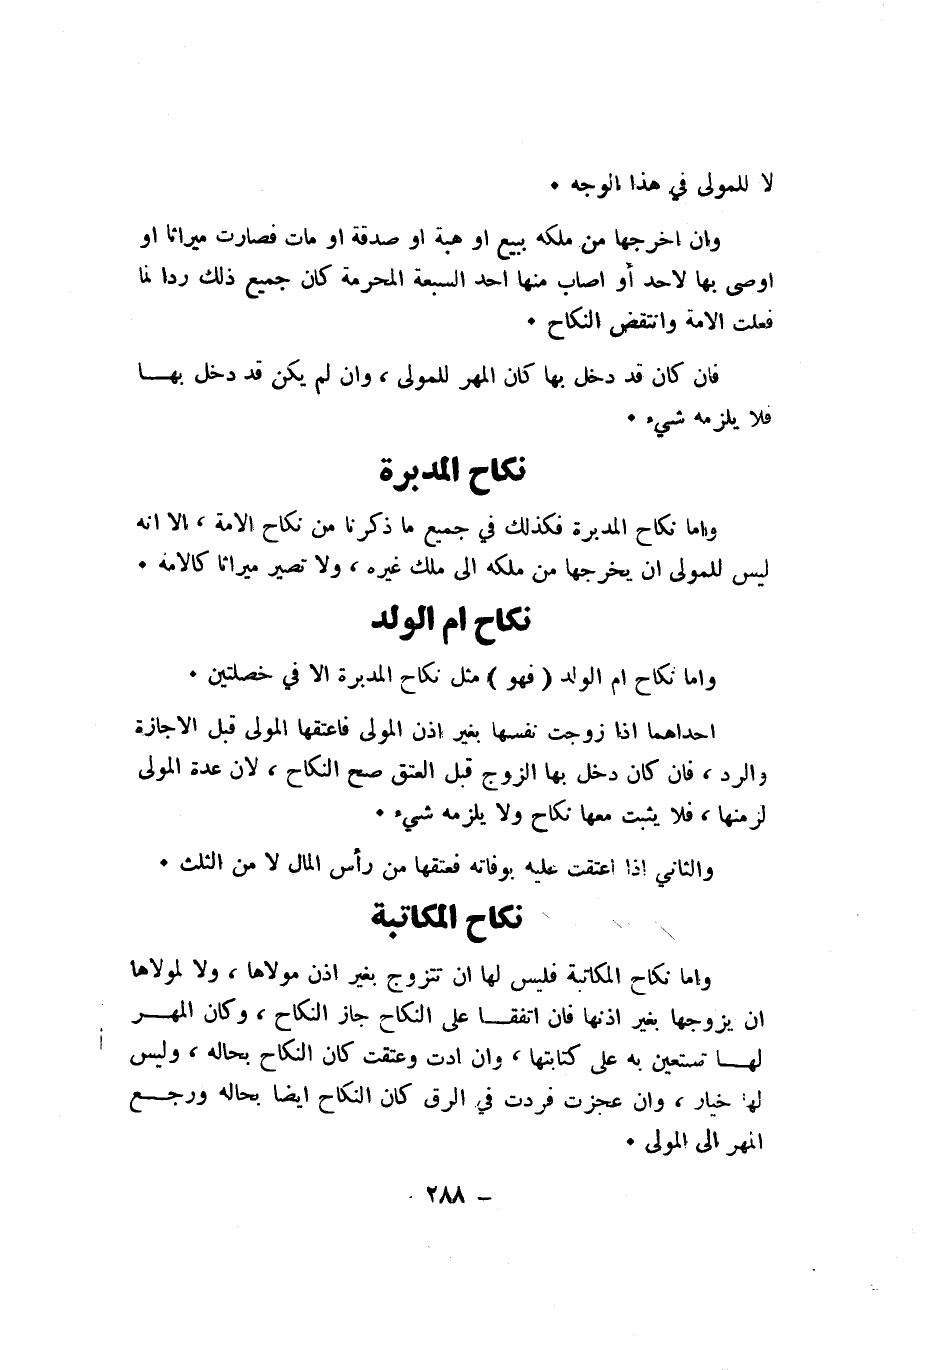 لا للمولى في هذا الوجه .
وان اخرجها من ملكه ببيع او هبة او صدقة او مات فصارت ميراثا او
اوصى بها لاحد أو اصاب منها احد السبعة المحرمة كان جميع ذلك ردا لما
فعلت الامة وانتقض النكاح .
فان كان قد دخل بها كان المهر للمولى ، وان لم يكن قد دخل بهـــا
فلا يلزمه شيء .
نكاح المدبرة
واما نكاح المدبرة فكذلك في جميع ما ذكرنا من نكاح الامة ، الا انه
ليس للمولى ان يخرجها من ملكه الى ملك غيره ، ولا تصير ميراثا كالامة .
نكاح ام الولد
واما نكاح ام الولد ( فهو ) مثل نكاح المدبرة الا في خصلتين .
احداهما اذا زوجت نفسها بغير اذن المولى فاعتقها المولى قبل الاجازة
والرد ، فان كان دخل بها الزوج قبل العتق صح النكاح ، لان عدة المولى
لزمنها ، فلا يثبت معها نكاح ولا يلزمه شيء .
والثاني اذا اعتقت عليه بوفاته فعتقها من رأس المال لا من الثلث .
نكاح المكاتبة
واما نكاح المكاتبة فليس لها ان تتزوج بغير اذن مولاها ، ولا لمولاها
ان يزوجها بغير اذنها فان اتفقـــا على النكاح جاز النكاح ، وكان المهـــر
لهـــا تستعين به على كتابتها ، وان ادت وعتقت كان النكاح بحاله ، وليس
لها خيار ، وان عجزت فردت في الرق كان النكاح ايضا بحاله ورجـــع
المهر الى المولى .
- ٢٨٨ -